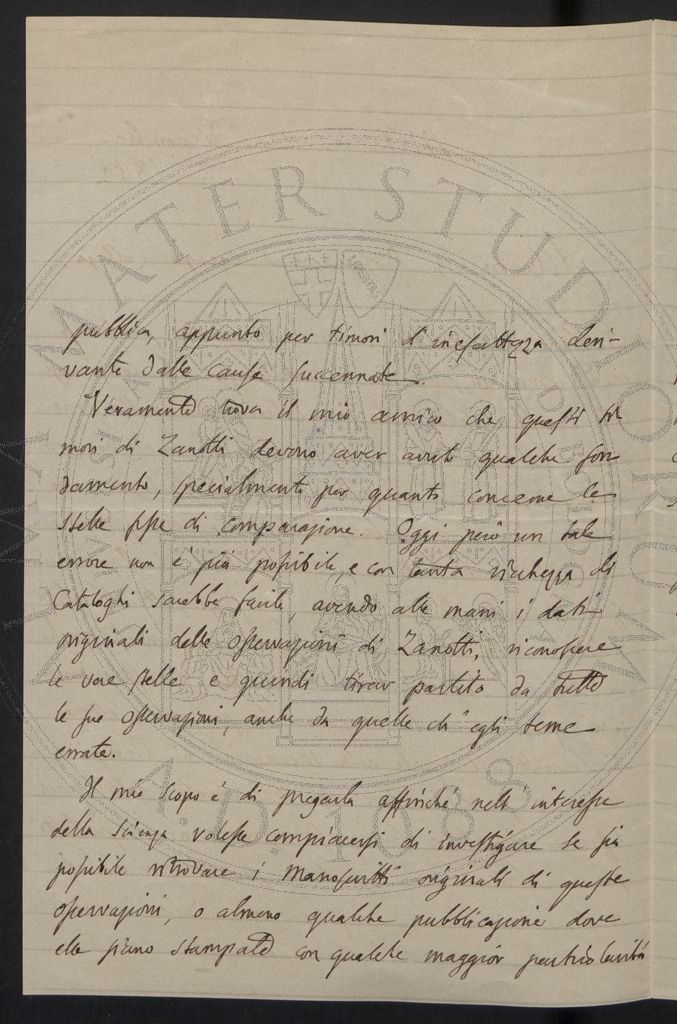 pubblica, appunto per timori d'inesattezza deri-
vante dalle cause succennate.
Veramente trova il mio amico che questi ti
mori di Zanotti devono aver avuto qualche fon
damento, specialmente per quanto concerne le
stelle fisse di comparazione. Oggi però un tale
errore non è più possibile, e con tanta ricchezza di
Cataloghi sarebbe facile, avendo alle mani i dati
originali delle osservazioni di Zanotti, riconoscere
le vere stelle e quindi tirar partito da tutte
le sue osservazioni, anche da quelle ch'egli teme
errate.
Il mio scopo è di pregarla affinché nell'interesse
della scienza volesse compiacersi di investigare se sia
possibile ritrovare i manoscritti originali di queste
osservazioni, o almeno qualche pubblicazione dove
elle siano stampate con qualche maggior particolarità
ALMA MATER STUDIORUM
A.D. 1088
LIBERTAS